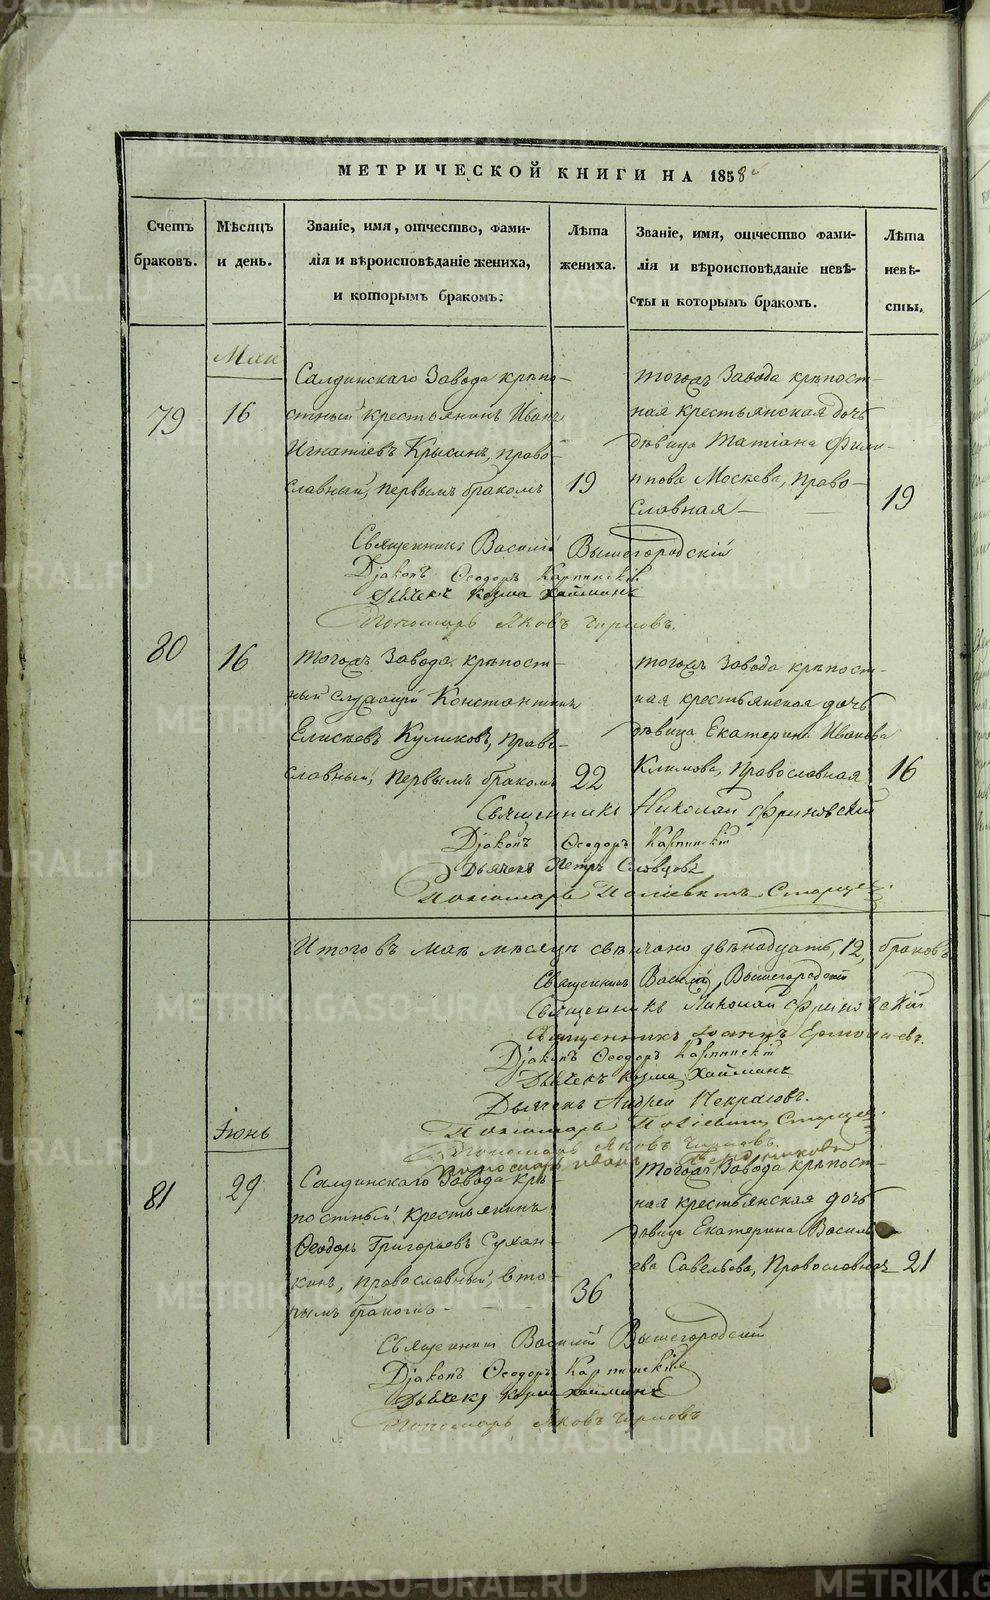 МЕТРИЧЕСКОЙ КНИГИ НА 1858
Счетъ браковъ.
Мѣсяцъ и день.
Званіе, имя, отчество, фами-
лія и вѣроисповѣданіе жениха,
и которымъ бракомъ.
Лѣта жениха.
Званіе, имя, отчество фами-
лія и вѣроисповѣданіе невѣ-
сты и которымъ бракомъ.
Лѣта невѣ-
сты.
Маи
79
16
Салдинскаго Завода крѣпо-
стный крестьянинъ Иванъ
Игнатіевъ Крысинъ, право-
славный, первымъ бракомъ
19
тогожъ Завода крѣпост-
ная крестьянская дочь
дѣвица Татіана Фили-
ппова Москева, Право-
славная
19
Священникъ Василій Вышегородскій
Діаконъ Ѳеодоръ Карпинскій
Дьячекъ Козма Хайминъ
Пономарь Яковъ Чирковъ.
80
16
тогожъ Завода крѣпост-
ный служащій Константинъ
Елисѣевъ Куликовъ, Право-
славный, первымъ бракомъ
22
тогожъ Завода крѣпост-
ная крестьянская дочь
дѣвица Екатерина Иванова
Климова, Православная
16
Священникъ Николай Фриновскій
Діаконъ Ѳеодоръ Карпинскій
Дьячекъ Петръ Словцовъ
Пономарь Поліевктъ Старцев
Итого въ маѣ мѣсяцѣ свѣнчано двѣнадцать, 12, браковъ
Священникъ Василій Вышегородскій
Священникъ Николай Фриновскій
Священникъ Іоаннъ
Діаконъ Ѳеодоръ Карпинскій
Дьячекъ Козма Хайминъ
Дьячекъ Андрей Некрасовъ.
Пономарь Поліевктъ Старцев
Пономарь Яковъ Чирковъ.
Пономарь Иванъ
Іюнь
81
29
Салдинскаго Завода крѣ-
постный крестьянинъ
Ѳеодоръ Григорьевъ Сухан-
кинъ, православный, вто-
рымъ бракомъ
36
тогожъ Завода крѣпост-
ная крестьянская дочь
дѣвица Екатерина Василь-
ева Савельева, Православная
21
Священникъ Василій Вышегородскій
Діаконъ Ѳеодоръ Карпинскій
Дьячекъ Козма Хайминъ
Пономарь Яковъ Чирковъ
METRIKI.GASO-URAL.RU